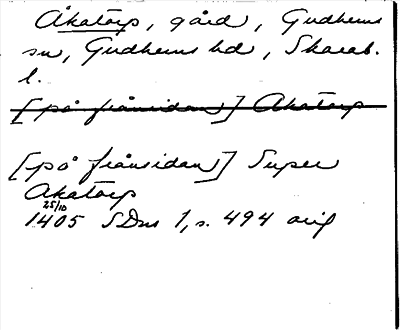 Åkatorp, gård, Gudhems
sn, Gudhems hd, Skarab.
l.
[på frånsidan] Akatorp
[på frånsidan] Super
Akatorp
25/10
1405 SDns 1, s. 494 orig